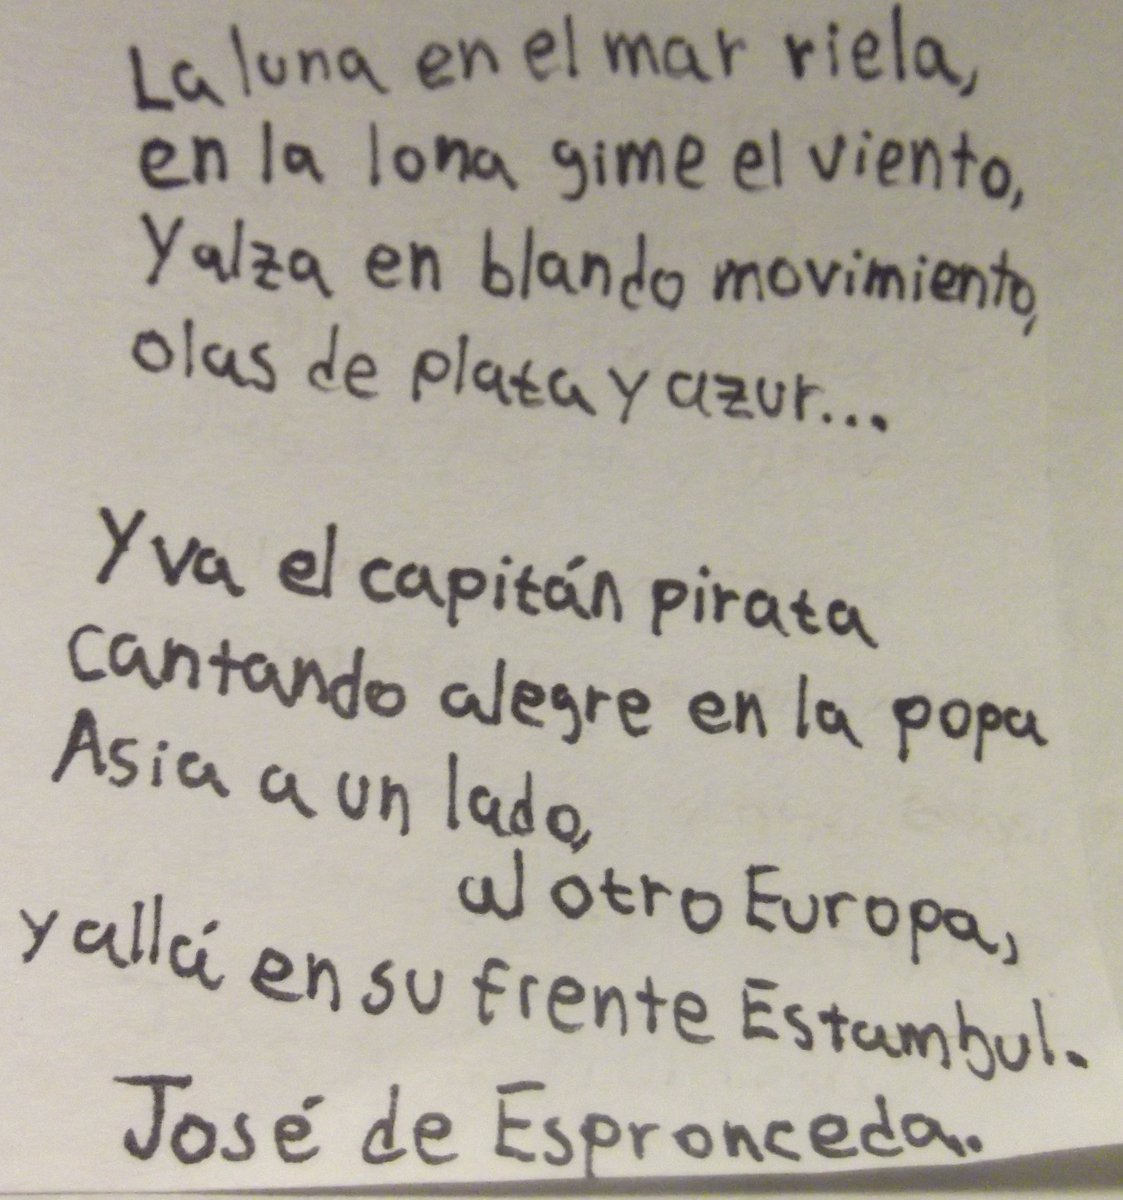 La luna en el mar riela,
en la lona gime el viento,
Y alza en blando movimiento,
olas de plata y azur...
Y va el capitán pirata
cantando alegre en la popa
Asia a un lado,
al otro Europa,
y allá en su frente Estambul.
José de Espronceda.